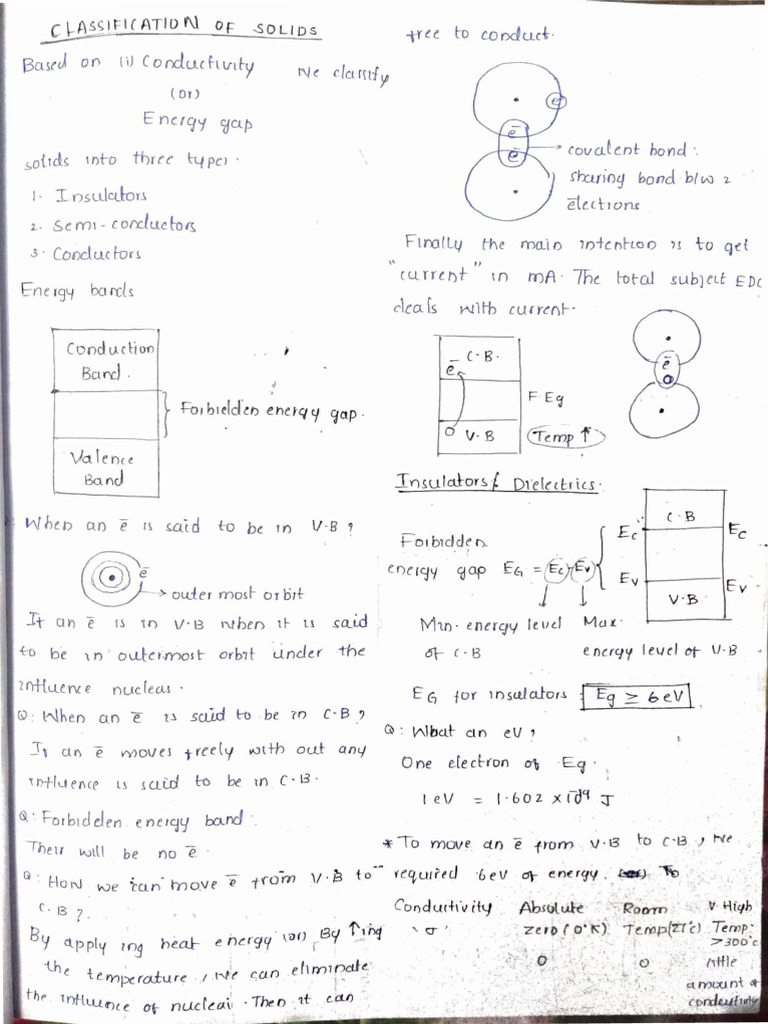 CLASSIFICATION OF SOLIDS
Based on (i) Conductivity We classify
(or)
Energy gap
solids into three types.
1. Insulators
2. Semi-conductors
3. Conductors
Energy bands
Conduction
Band.
Forbidden energy gap.
Valence
Band
Q: When an e̅ is said to be in V.B?
e̅
outer most orbit
If an e̅ is in V.B when it is said
to be in outermost orbit under the
influence nucleas.
Q: When an e̅ is said to be in C.B?
If an e̅ moves freely with out any
influence is said to be in C.B.
Q: Forbidden energy band:
Their will be no e̅
Q: How we can move e̅ from V.B to
C.B?
By apply ing heat energy (or) By ↑ing
the temperature, we can eliminate
the influence of nucleai. Then it can
free to conduct.
e̅
e̅
e̅
covalent bond:
sharing bond b/w 2
electrons
Finally the main intention is to get
"current" in mA. The total subject EDC
deals with current.
C.B.
e̅
F.Eg
V.B
Temp ↑
e̅
Insulators/ Dielectrics.
Forbidden
energy gap EG = Ec-Ev
Ec
Ev
C.B
V.B
Ec
Ev
Min. energy level
of C.B
Max.
energy level of V.B
EG for insulators : Eg ≥ 6eV
Q: What an eV?
One electron of Eg.
1eV = 1.602 x10⁻¹⁹ J
* To move an e̅ from V.B to C.B, we
required 6eV of energy. To
Conductivity Absolute Room V.High
'σ' zero(0°K) Temp(27°c) Temp:
>300°c
0 0 little
amount of
conductivity